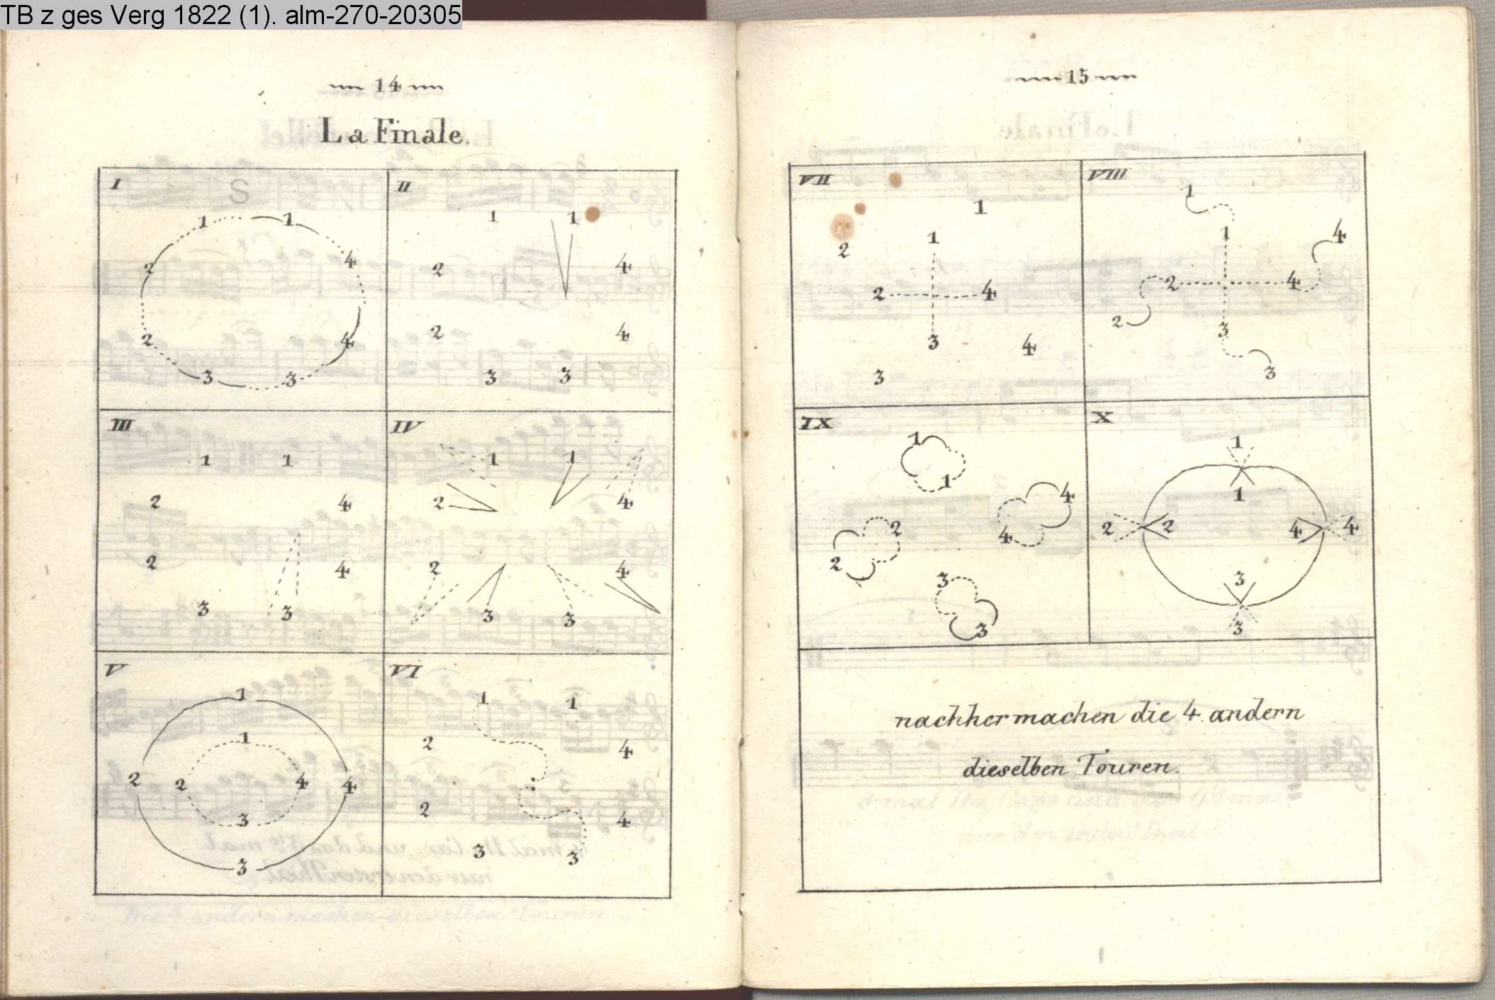 TB z ges Verg 1822 (1). alm-270-20305
14
La Finale.
I
S
1 1
2 4
2 4
3 3
II
1 1
2 4
2 4
3 3
III
1 1
2 4
2 4
3 3
IV
1 1
2 4
2 4
3 3
V
1
1
2 2 4 4
3
3
VI
1 1
2 4
2 4
3 3
15
VII
1
2 1
2 4
3 4
3
VIII
1
1 4
2 4
2 3
3
IX
1
1 4
2 4
2
3
3
X
1
1
2 2 4 4
3
3
nachher machen die 4 andern
dieselben Touren.